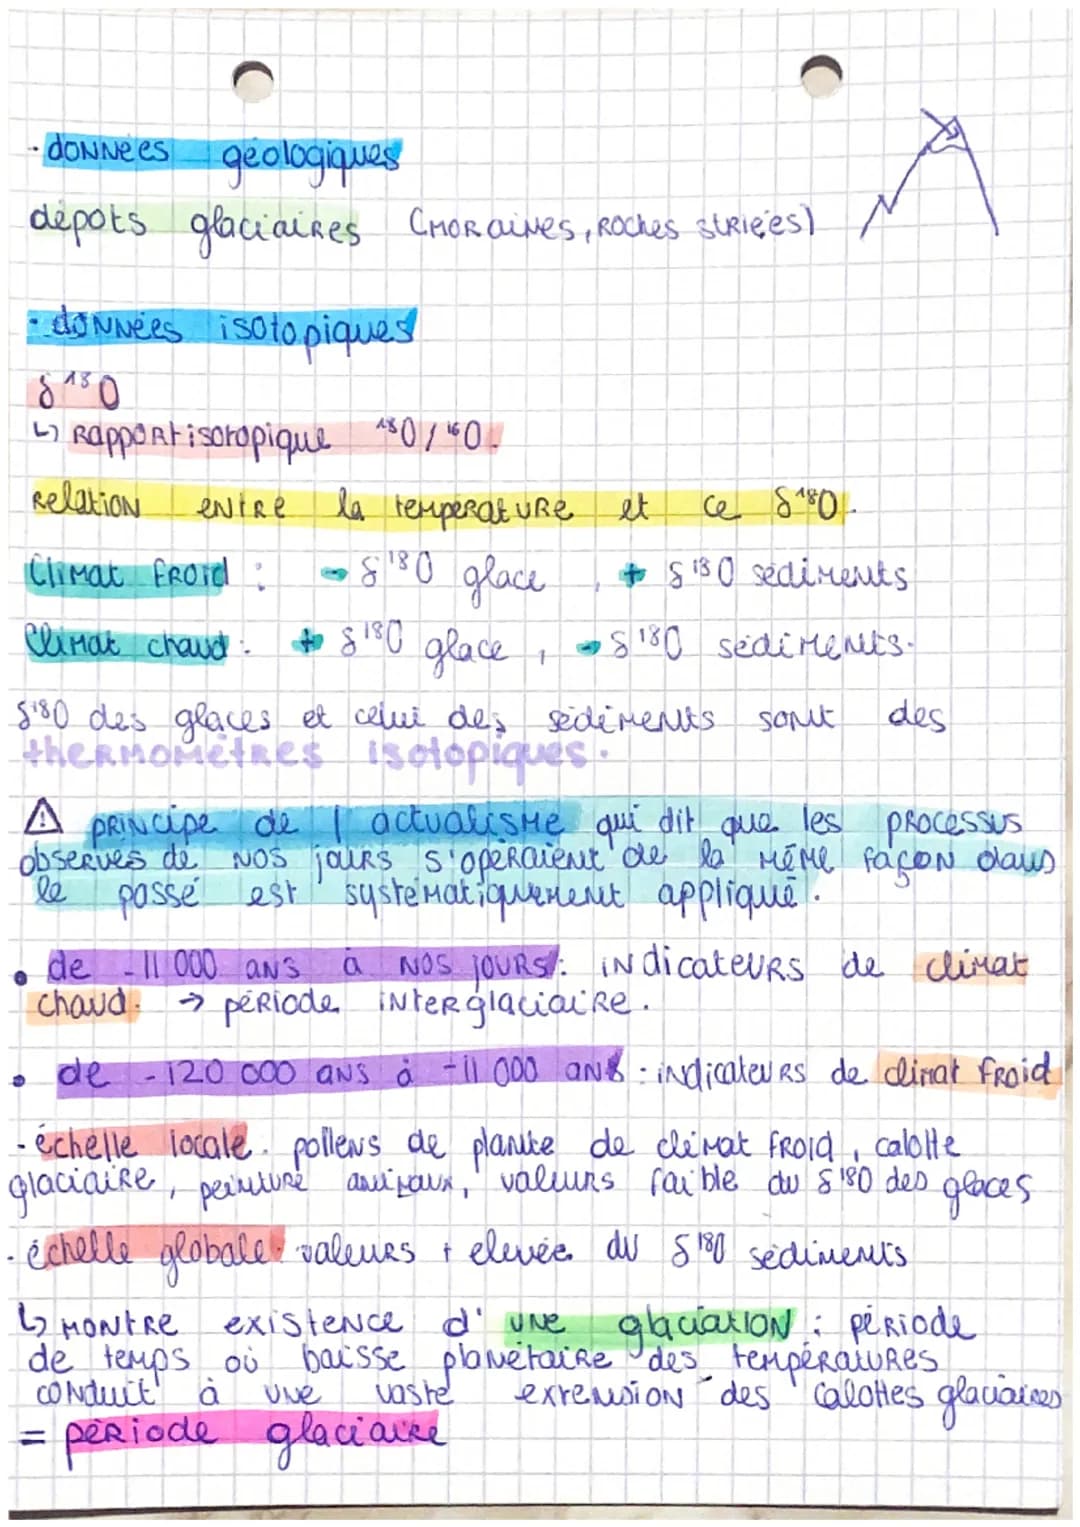 - données géologiques
dépots glaciaires (moraines, roches striées)
- données isotopiques
δ 18O
↳ Rapport isotopique 18O / 16O.
Relation entre la température et ce δ18O.
Climat froid : - δ18O glace, + δ18O sédiments
Climat chaud : + δ18O glace, - δ18O sédiments.
δ18O des glaces et celui des sédiments sont des
thermomètres isotopiques.
⚠ principe de l'actualisme qui dit que les processus
observés de nos jours s'opéraient de la même façon dans
le passé est systématiquement appliqué.
• de -11 000 ans à nos jours : indicateurs de climat
chaud. → période interglaciaire.
• de -120 000 ans à -11 000 ans : indicateurs de climat froid
- échelle locale : pollens de plante de climat froid, calotte
glaciaire, peinture animaux, valeurs faible du δ18O des glaces
- échelle globale : valeurs + elevée du δ18O sédiments
↳ montre existence d'une glaciation : période
de temps où baisse planétaire des températures
conduit à une vaste extension des calottes glaciaires
= période glaciaire